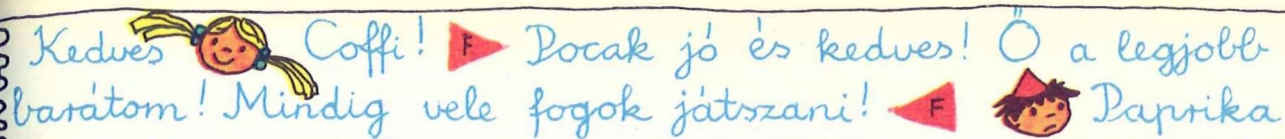 Kedves Coffi! F Pocak jó és kedves! Ő a legjobb
barátom! Mindig vele fogok játszani! F Paprika